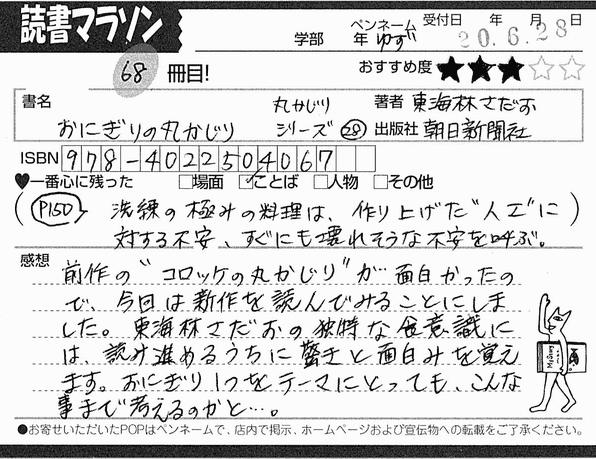 読書マラソン
学部 年 ペンネーム ゆず 受付日 年 月 日
20.6.28
68 冊目!
おすすめ度 ★★★☆☆
書名 おにぎりの丸かじり 丸かじりシリーズ㉘
著者 東海林さだお
出版社 朝日新聞社
ISBN 978-4022504067
♥一番心に残った □場面 ☑ことば □人物 □その他
(P150 洗練の極みの料理は、作り上げた"人工"に
対する不安、すぐにも壊れそうな不安を呼ぶ。)
感想
前作の"コロッケの丸かじり"が面白かったの
で、今回は新作を読んでみることにしま
した。東海林さだおの独特な食意識に
は、読み進めるうちに驚きと面白みを覚え
ます。おにぎり1つをテーマにとっても、こんな
事まで考えるのかと…。
●お寄せいただいたPOPはペンネームで、店内で掲示、ホームページおよび宣伝物への転載をご了承ください。